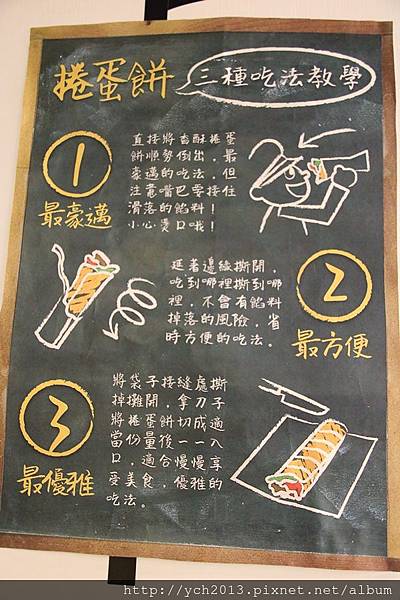 捲蛋餅
三種吃法教學
1
最豪邁
直接將香酥捲蛋
餅順勢倒出，最
豪邁的吃法，但
注意嘴巴要接住
滑落的餡料！
小心燙口哦！
2
最方便
延著邊緣撕開，
吃到哪裡撕到哪
裡，不會有餡料
掉落的風險，省
時方便的吃法。
3
最優雅
將袋子接縫處撕
掉攤開，拿刀子
將捲蛋餅切成適
當份量後一一入
口，適合慢慢享
受美食，優雅的
吃法。
http://ych2013.pixnet.net/album